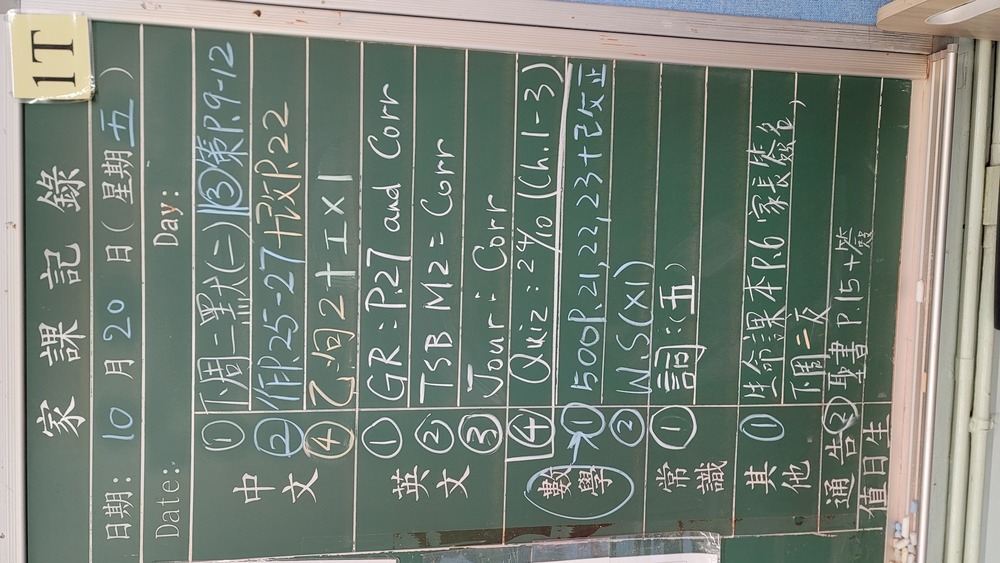 1T
家課記錄
日期: 10 月 20 日 (星期 五 )
Date: Day:
中文
① 下周二默(二)
③ 策P.9-12
② 作P.25-27+改P.22
④ 乙:句2+工×1
英文
① GR: P.27 and Corr
② TSB M2: Corr
③ Jour: Corr
④ Quiz: 24/10 (Ch.1-3)
數學
① 500P.21,22,23+已改正
② W.S(×1)
常識
① 詞:(五)
其他
① 生命課本P.6 家長簽名,
下周二交
通告
② 聖書P.15+簽
值日生